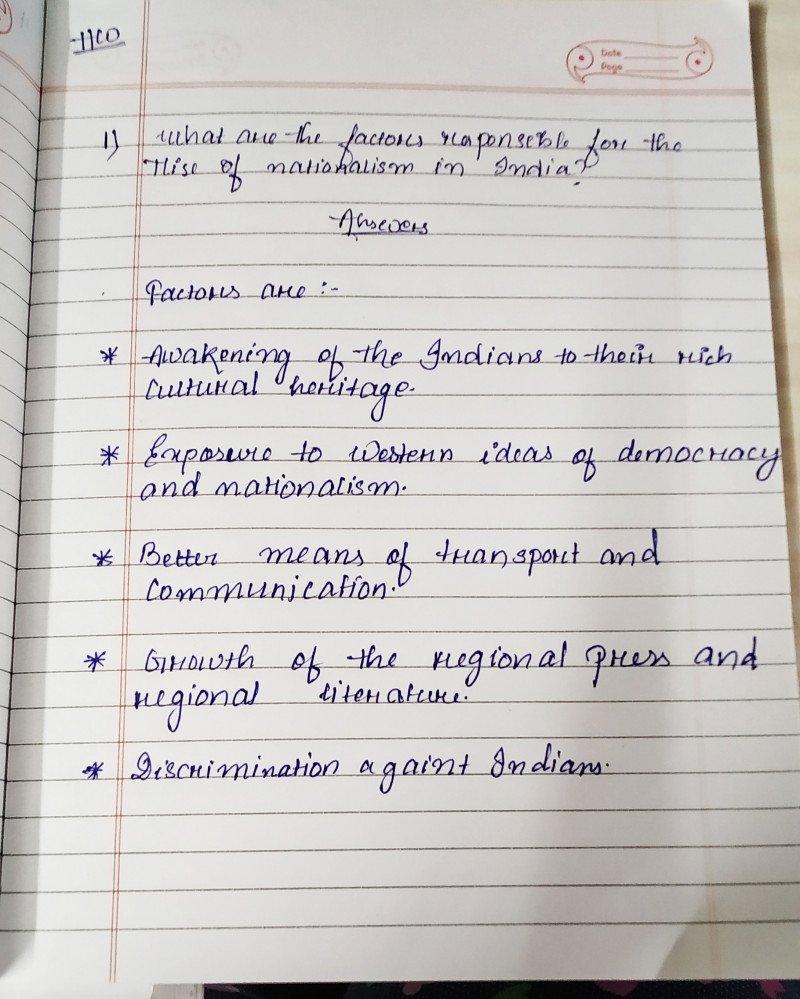 Date
Page
1) What are the factors responseble for the
rise of nationalism in India?
Answers
Factors are :-
* Awakening of the Indians to their rich
cultural heritage.
* Exposure to Western ideas of democracy
and nationalism.
* Better means of transport and
communication.
* Growth of the regional press and
regional literature.
* Discrimination againt Indians.